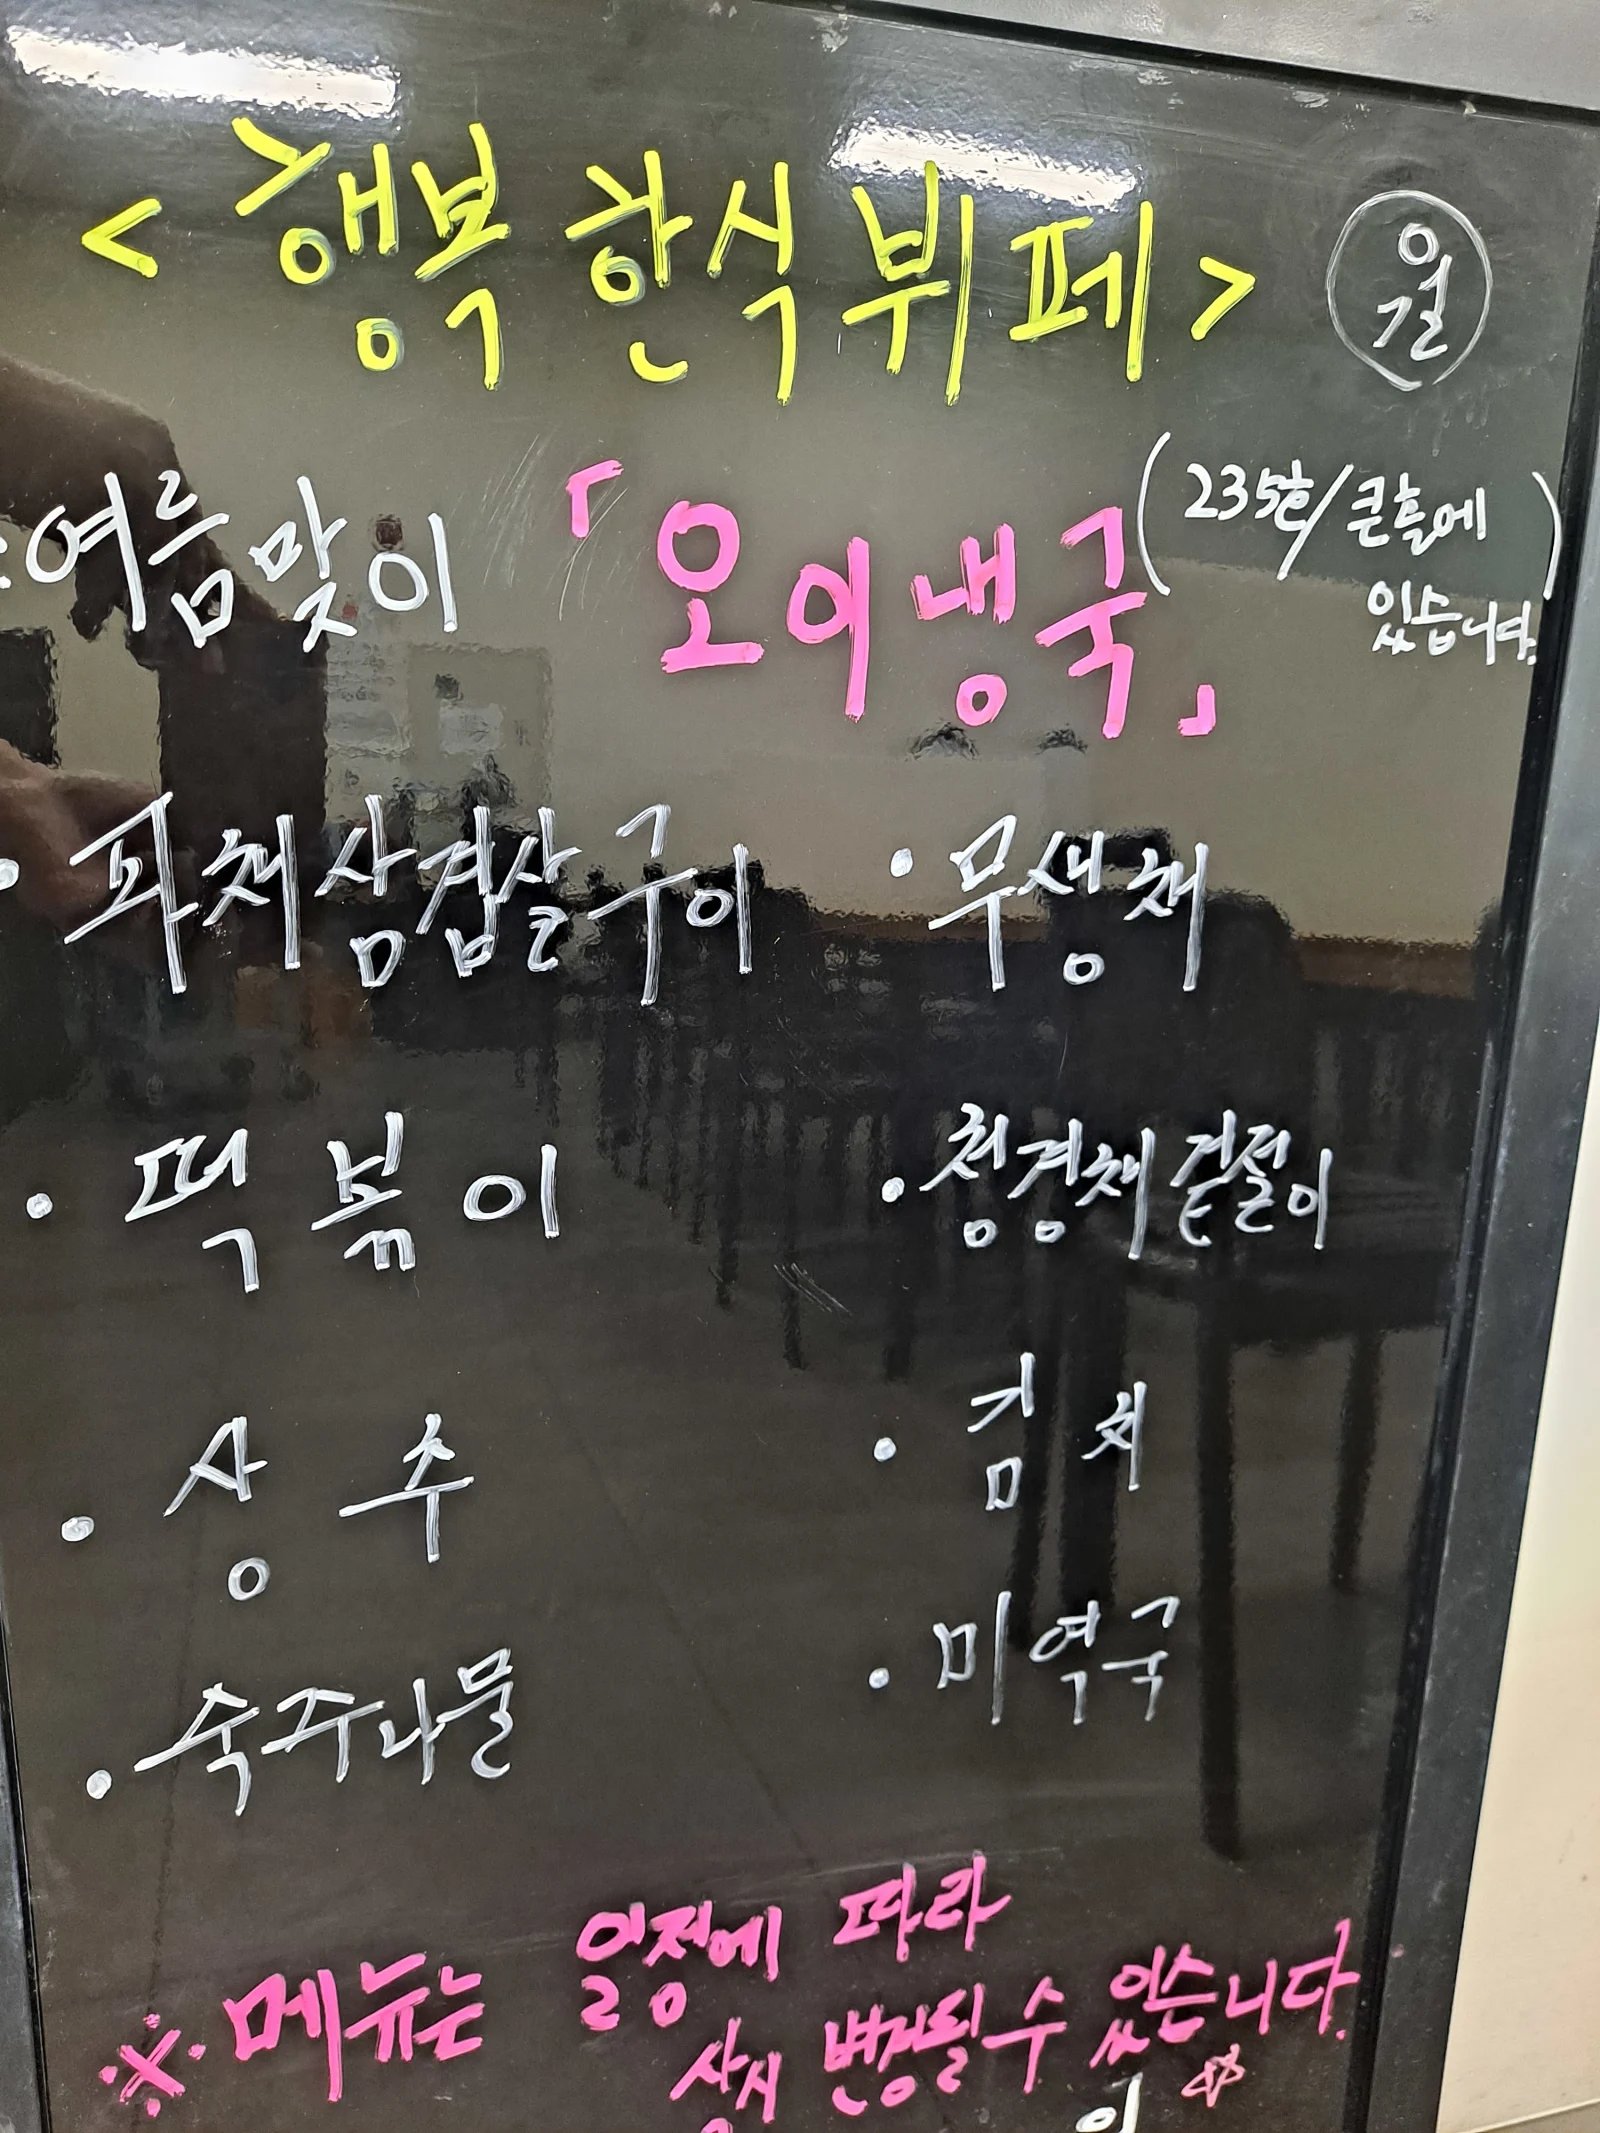 < 행복 한식 뷔페 > 월
여름맞이 「오이냉국」 (235호/큰홀에
있습니다.)
· 파채삼겹살구이
· 무생채
· 떡볶이
· 청경채 겉절이
· 상추
· 김치
· 숙주나물
· 미역국
※ 메뉴는 일정에 따라
상시 변경될 수 있습니다.